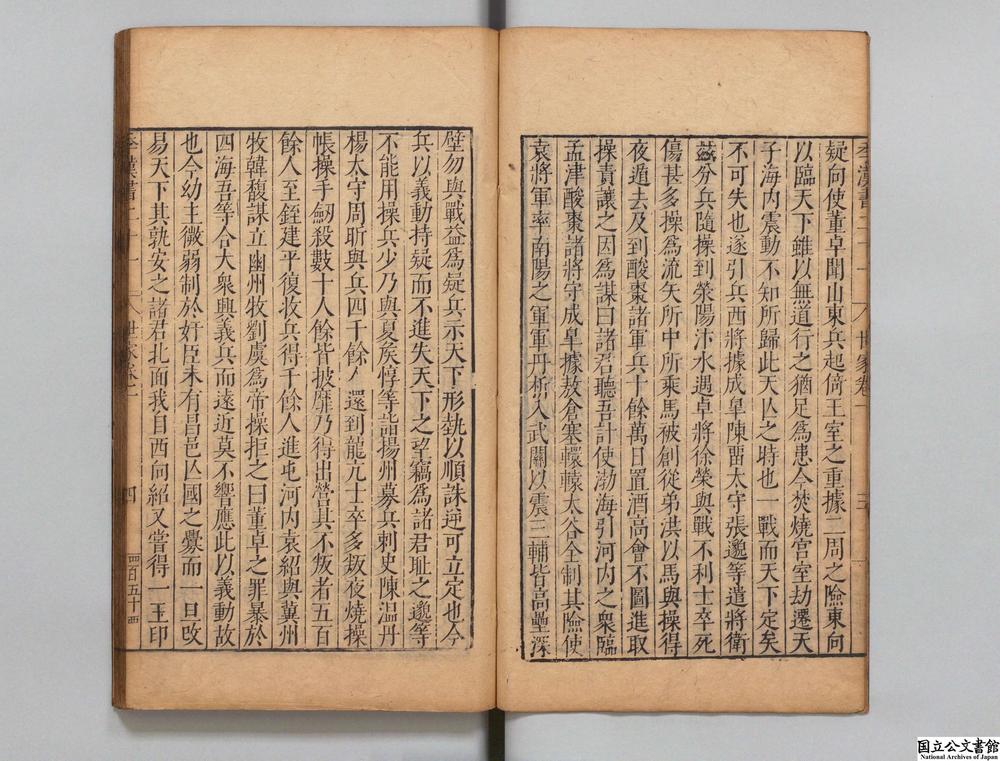 疑向使董卓聞山東兵起倚王室之重據二周之險東向
以臨天下雖以無道行之猶足爲患今焚燒宫室劫遷天
子海内震動不知所歸此天亾之時也一戰而天下定矣
不可失也遂引兵西將據成臯陳畱太守張邈等遣將衛
茲分兵隨操到滎陽汴水遇卓將徐榮與戰不利士卒死
傷甚多操爲流矢所中所乘馬被創從弟洪以馬與操得
夜遁去及到酸棗諸軍兵十餘萬日置酒高會不圖進取
操責讓之因爲謀曰諸君聽吾計使渤海引河内之衆臨
孟津酸棗諸將守成臯據敖倉塞轘轅太谷全制其險使
袁將軍率南陽之軍軍丹析入武關以震三輔皆高壘深
季漢書二十一
世家卷一
三
壁勿與戰益爲疑兵示天下形埶以順誅逆可立定也今
兵以義動持疑而不進失天下之望竊爲諸君耻之邈等
不能用操兵少乃與夏矦惇等詣揚州募兵刺史陳温丹
楊太守周昕與兵四千餘人還到龍亢士卒多叛夜燒操
帳操手劒殺數十人餘皆披靡乃得出營其不叛者五百
餘人至銍建平復收兵得千餘人進屯河内袁紹與冀州
牧韓馥謀立幽州牧劉虞爲帝操拒之曰董卓之罪暴於
四海吾等合大衆興義兵而遠近莫不響應此以義動故
也今幼主微弱制於奸臣未有昌邑亾國之釁而一旦攺
易天下其孰安之諸君北面我自西向紹又嘗得一王印
季漢書二十一
世家卷一
四
四百五十四
国立公文書館
National Archives of Japan